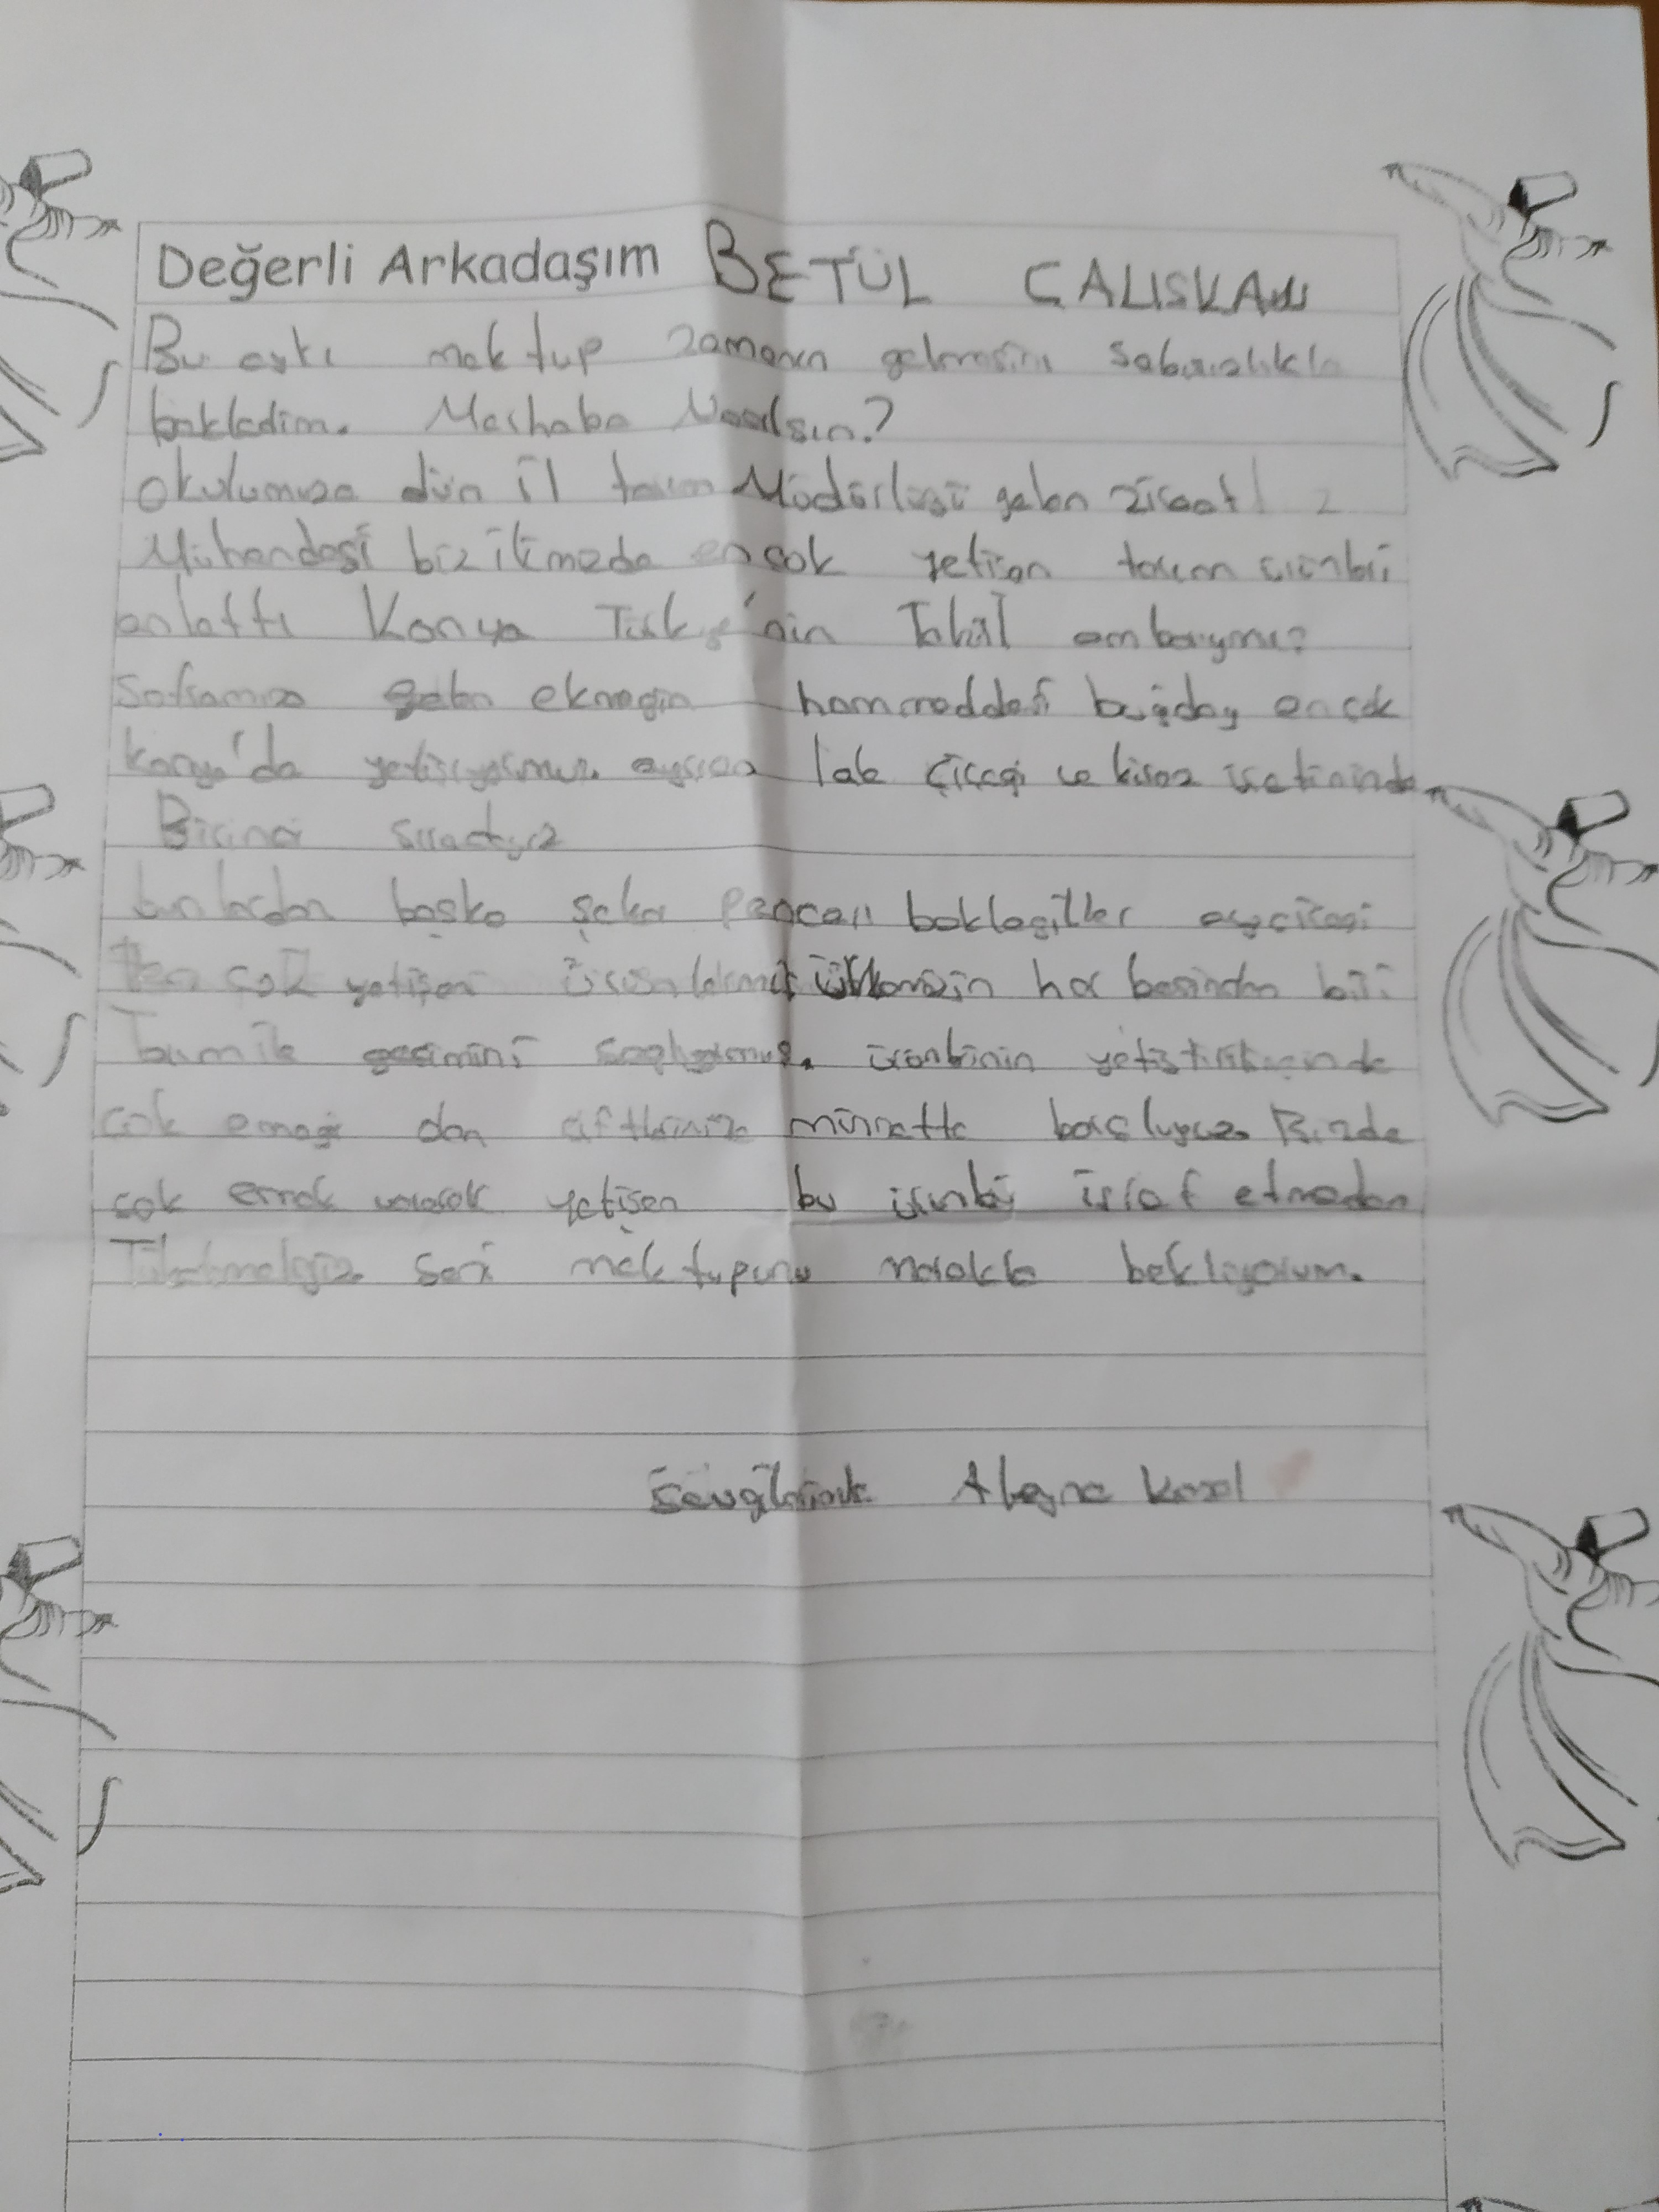 Değerli Arkadaşım BETÜL ÇALISKAN
Bu ayki mektup zamanın gelmesini sabırsızlıkla
bekledim. Merhaba Nasılsın?
okulumuza dün il tarım Müdürlüğü gelen ziraat
Mühendesi biz ilimizde en çok yetişen tarım ürünleri
anlattı Konya Türkiye'nin Tahıl ambarıymış
Soframıza gelen ekmeğin hammeddesi buğday en çok
konya'da yetişiyormuş. ayrıca lale çiçeği ve kiraz üretiminde
Birinci sıradayız
bunlardan başka şeker pancarı baklagiller ayçiceği
en çok yetişen ürünlermiş ülkemizin her
geçimini sağlıyormuş. ürünlerinin
çok emeği olan çiftlerimize minnette borçluyuz. Bizde
çok emek vererek yetişen bu ürünleri israf etmeden
Tüketmeliyiz. seni mektupunu merakla bekliyorum.
Sevgilerimle Aleyna